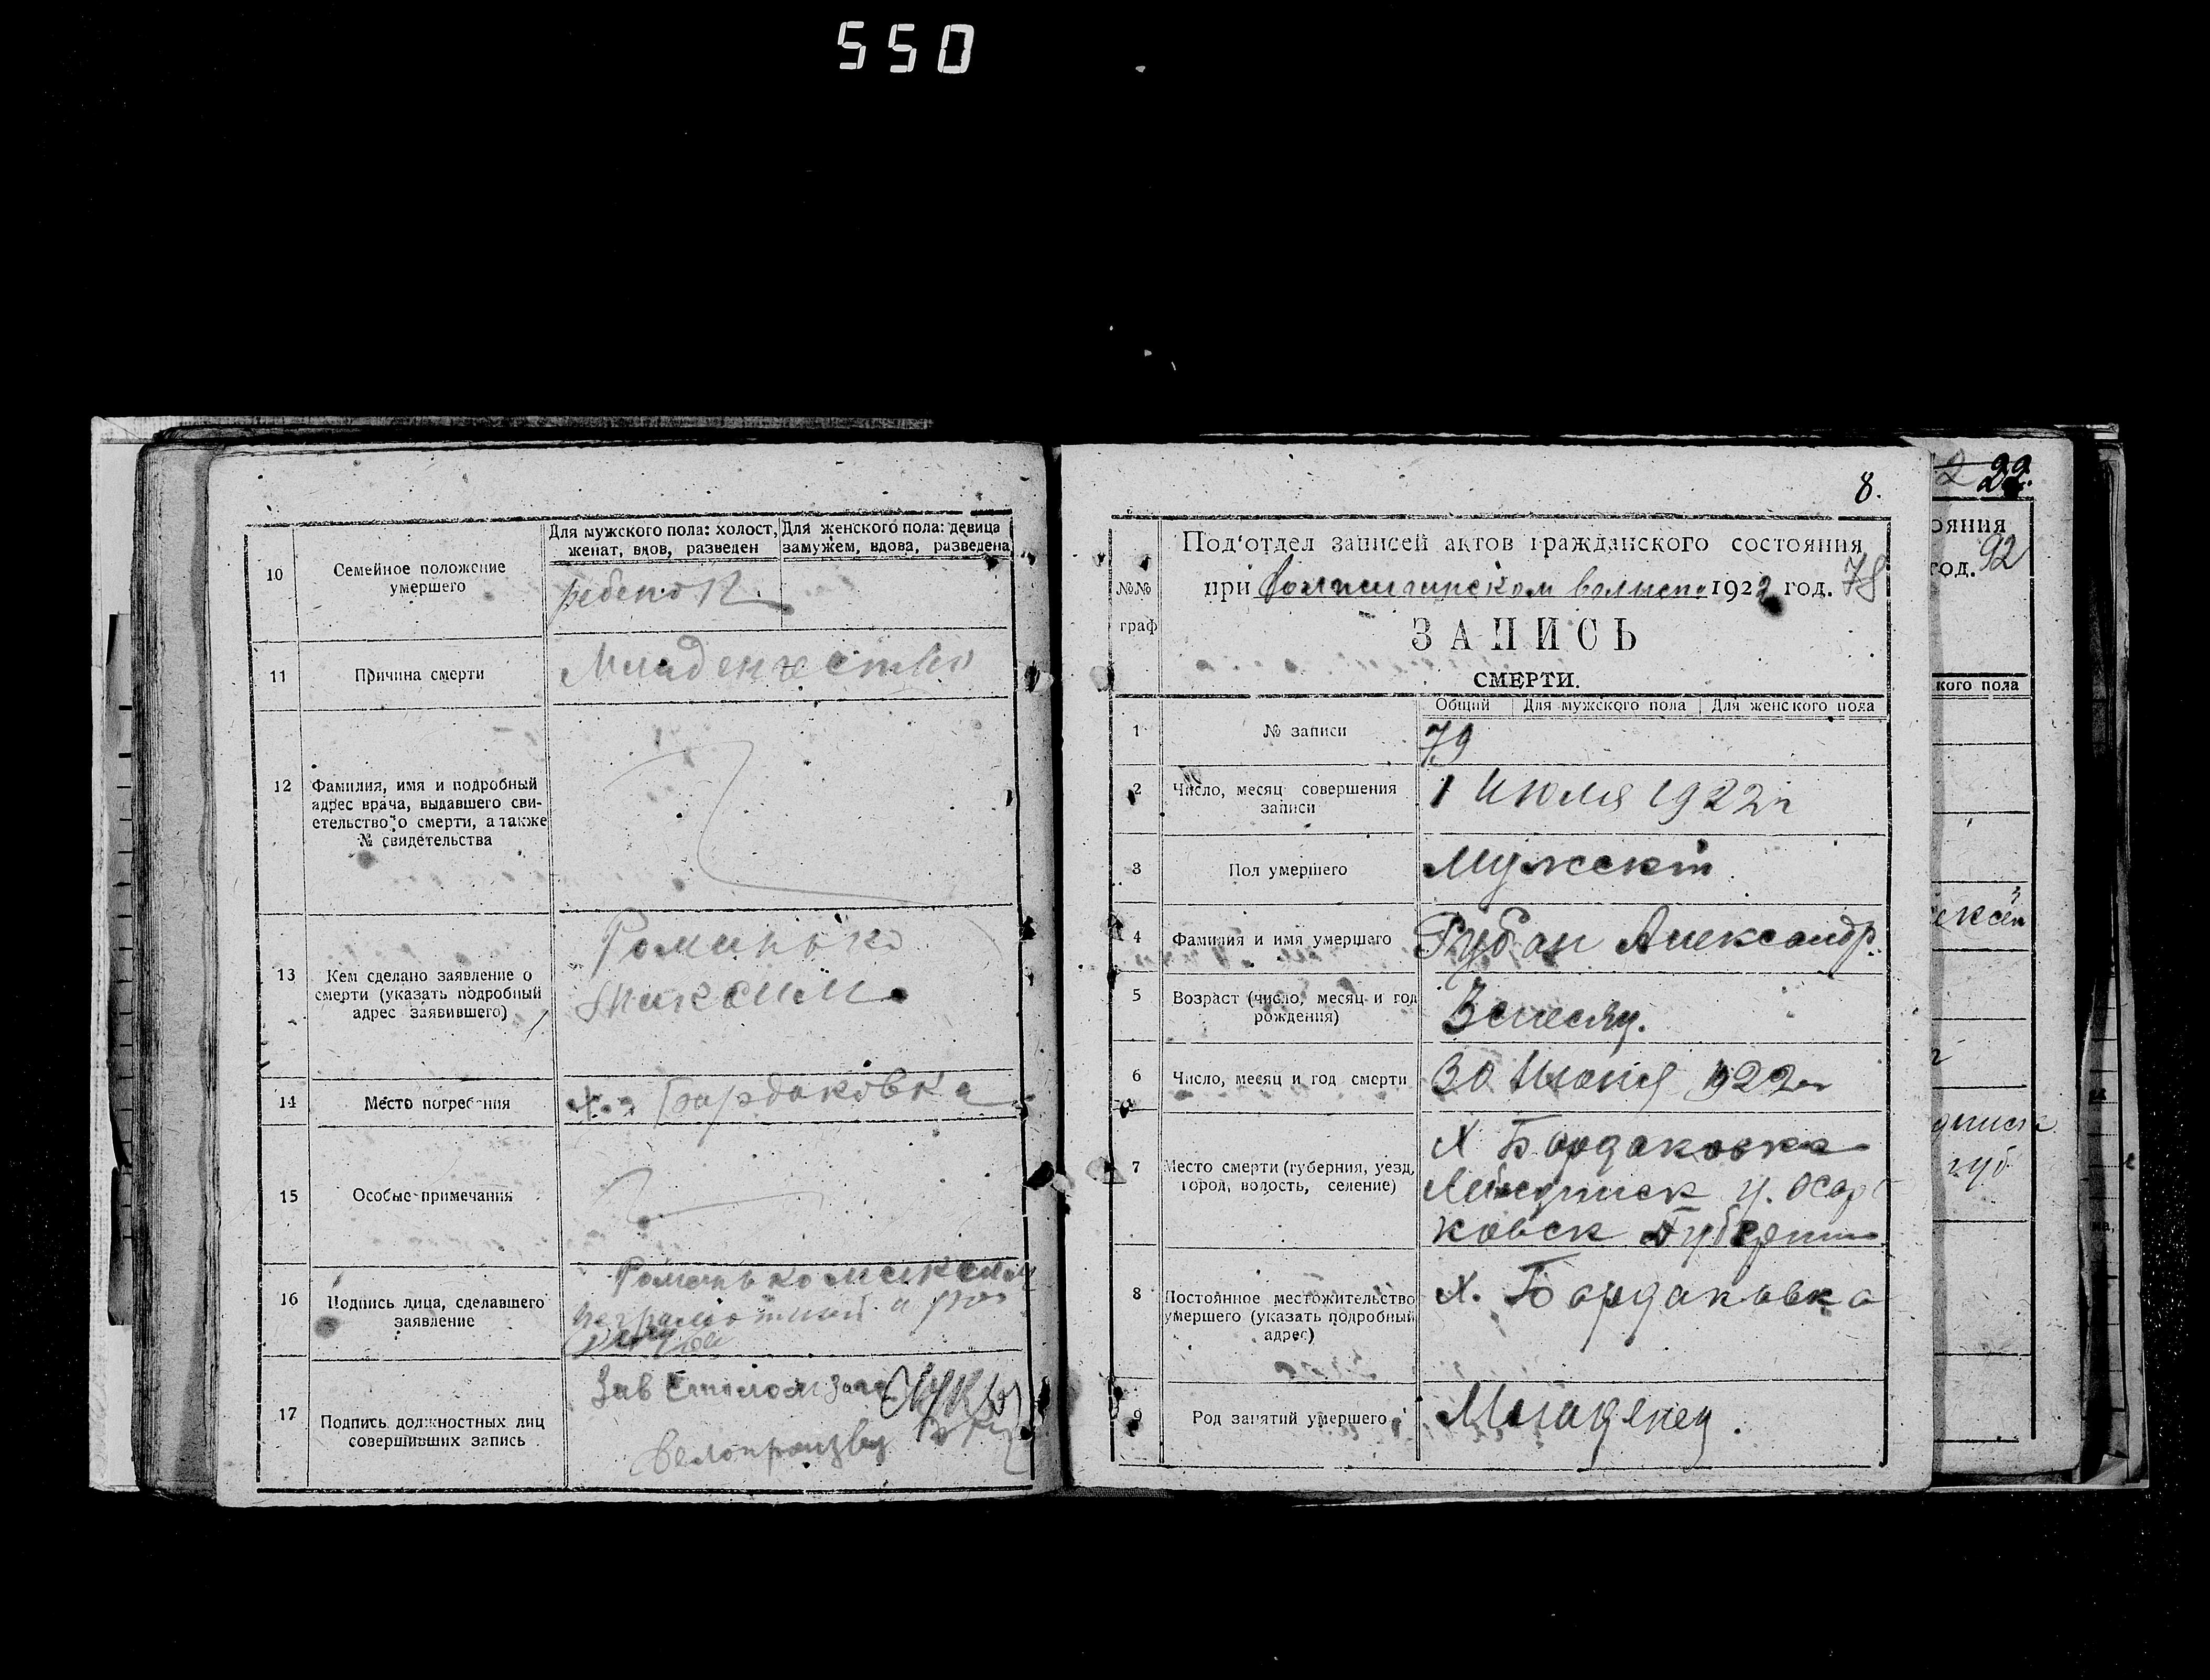 550
10
Семейное положение
умершего
Для мужского пола: холост,
женат, вдов, разведен
Для женского пола: девица
замужем, вдова, разведена
ребенок
11
Причина смерти
Младенчество
12
Фамилия, имя и подробный
адрес врача, выдавшего сви-
етельство о смерти, а также
№ свидетельства
13
Кем сделано заявление о
смерти (указать подробный
адрес заявившего)
Романько
Максим
14
Место погребения
х. Бардаковка
15
Особые примечания
16
Подпись лица, сделавшего
заявление
Романько Максим
неграмотный
17
Подпись должностных лиц
совершивших запись
Зав Столом
Делопроизвод
8.
№№
граф
Под'отдел записей актов гражданского состояния
при 1922 год. 78
ЗАПИСЬ
СМЕРТИ.
Общий Для мужского пола Для женского пола
1
№ записи
79
2
Число, месяц совершения
записи
1 Июля 1922 г
3
Пол умершего
Мужской
4
Фамилия и имя умершаго
Рубан Александр.
5
Возраст (число, месяц и год
рождения)
3 месяц.
6
Число, месяц и год смерти
30 Июня 1922 г
7
Место смерти (губерния, уезд,
город, волость, селение)
Х Бардаковка
Лебединск у. Харь
ковск Губернии
8
Постоянное местожительство
умершего (указать подробный
адрес)
Х. Бардаковка
9
Род занятий умершего
Младенец.
22.
ояния
год. 92
кого пола
губ